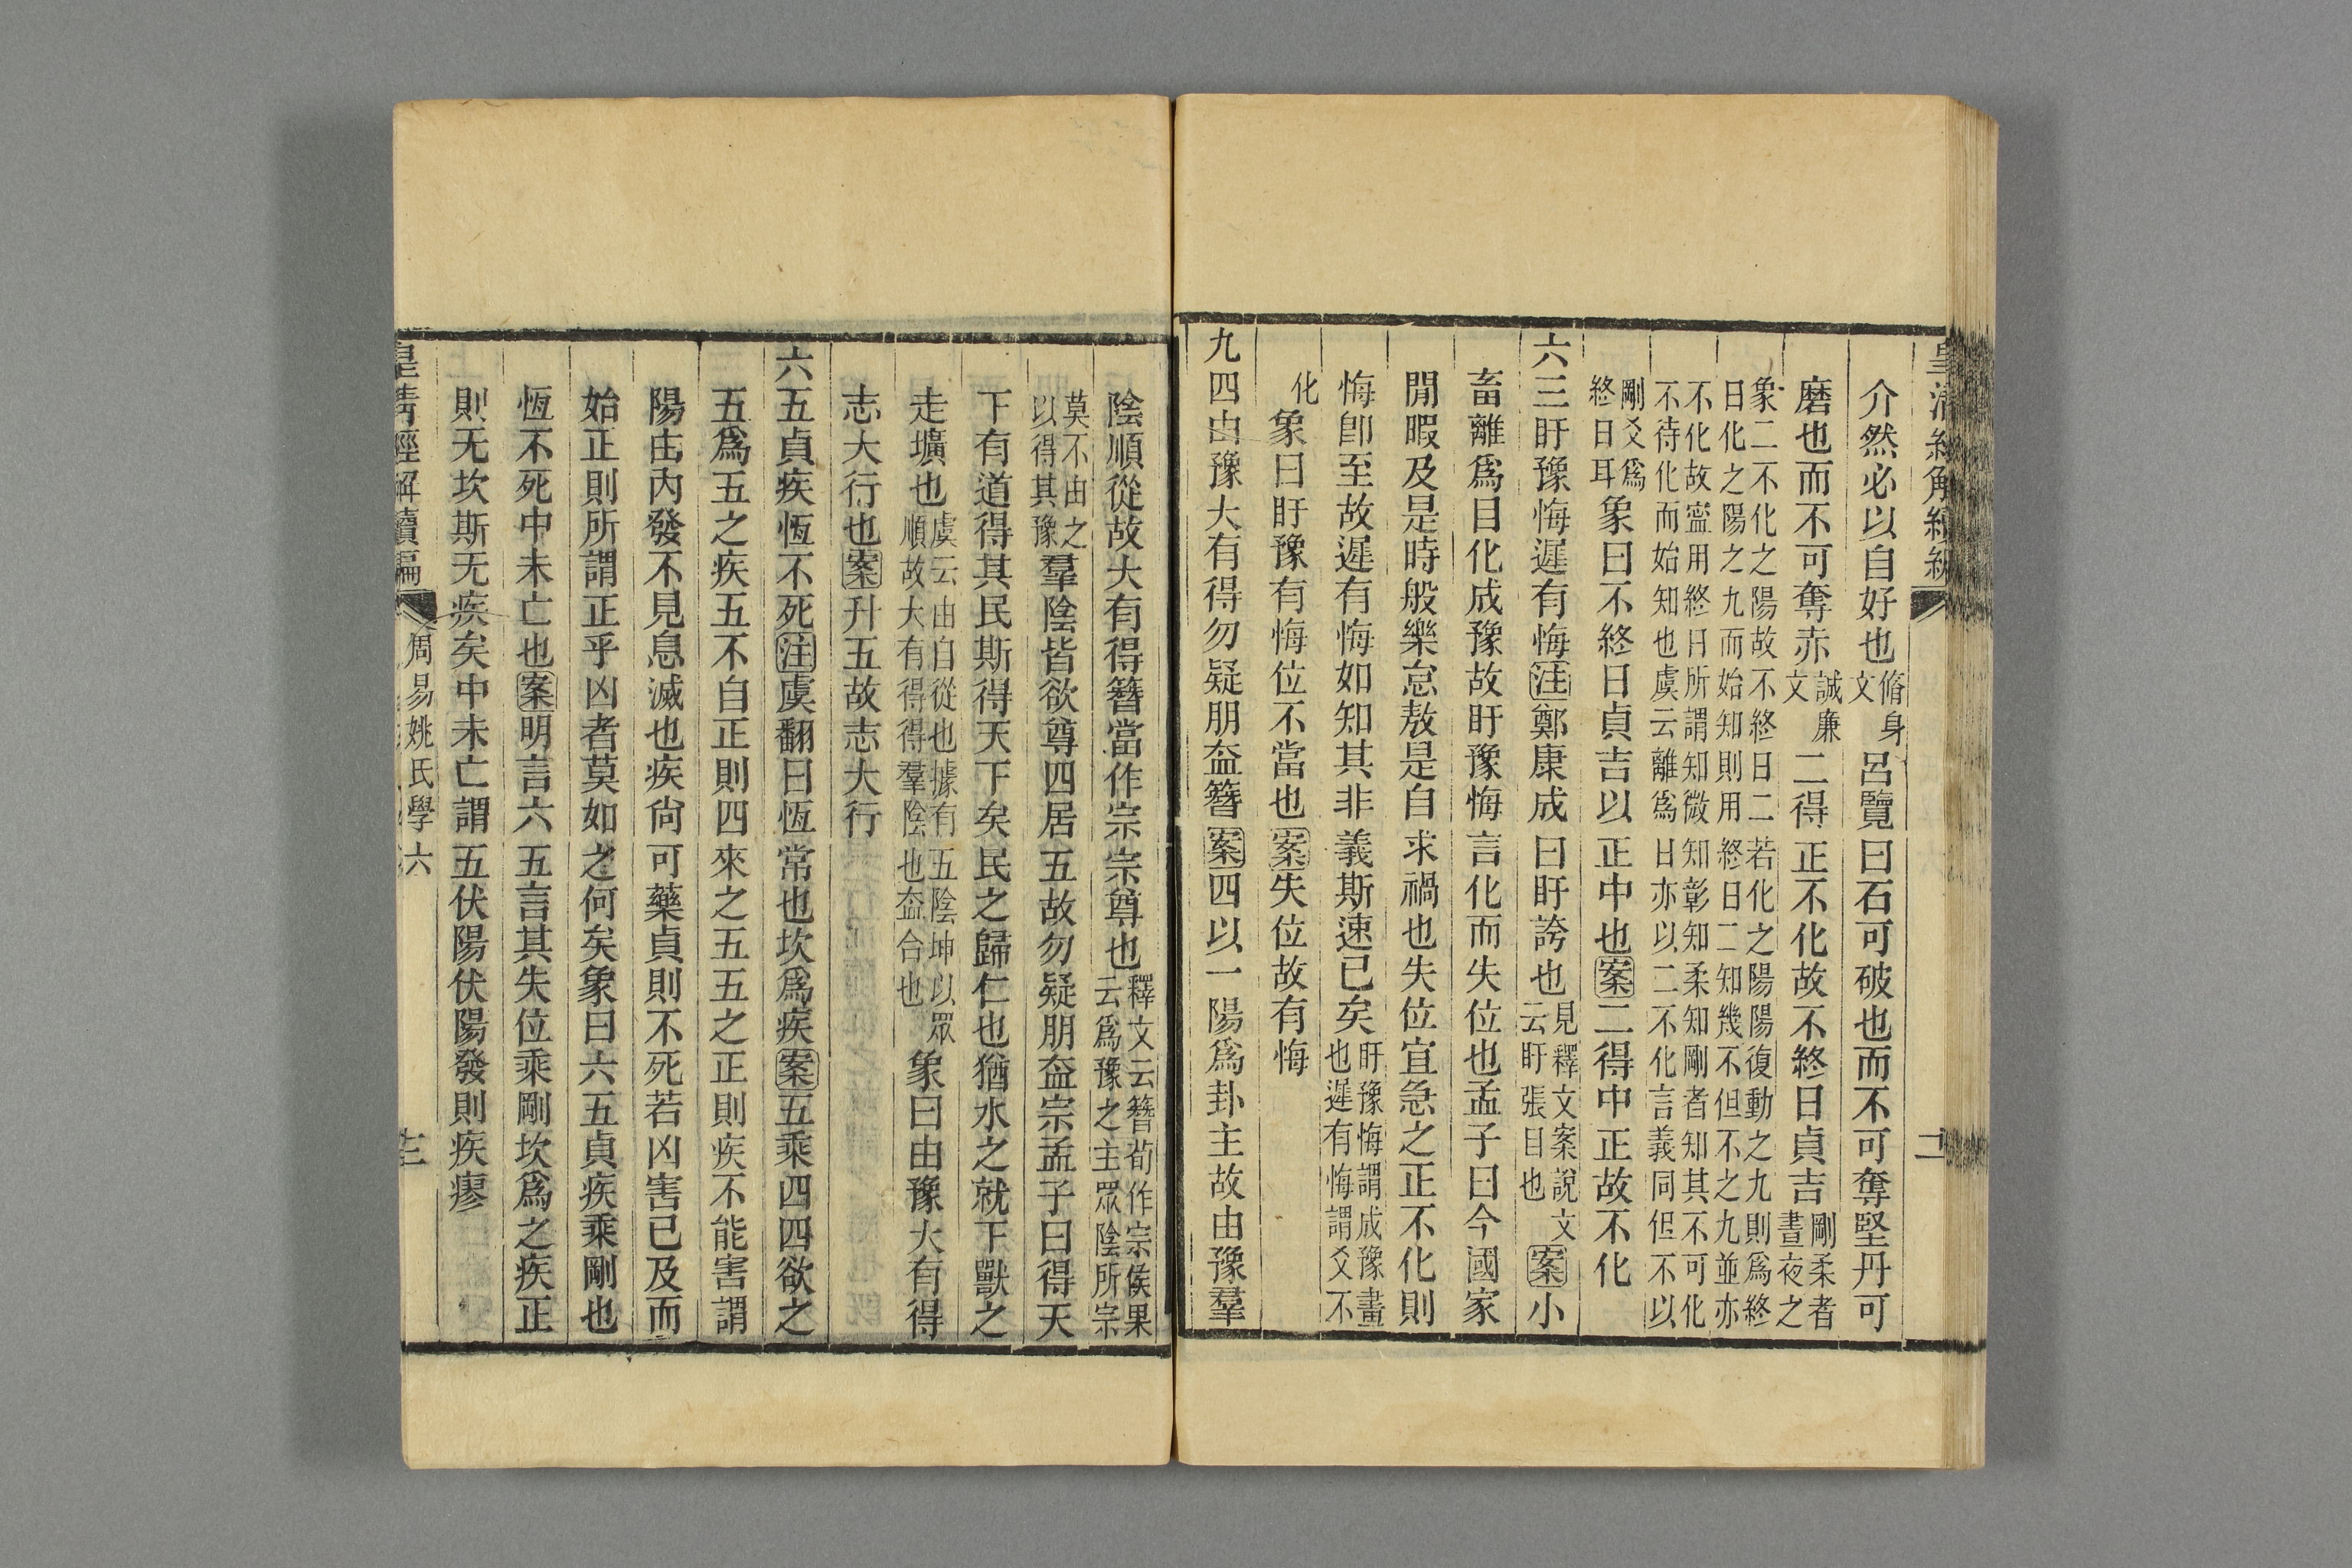 皇清經解續編
介然必以自好也脩身文呂覽曰石可破也而不可奪堅丹可
磨也而不可奪赤誠廉文二得正不化故不終日貞吉剛柔者晝夜之
象二不化之陽故不終日二若化之陽陽復動之九則爲終
日化之陽之九而始知則用終日二知幾不但不之九並亦
不化故寍用終日所謂知微知彰知柔知剛者知其不可化
不待化而始知也虞云離爲日亦以二不化言義同但不以
剛爻爲終日耳象曰不終日貞吉以正中也案二得中正故不化
六三盱豫悔遲有悔注鄭康成曰盱誇也見釋文案說文云盱張目也案小
畜離爲目化成豫故盱豫悔言化而失位也孟子曰今國家
閒暇及是時般樂怠敖是自求禍也失位宜急之正不化則
悔卽至故遲有悔如知其非義斯速已矣盱豫悔謂成豫畫也遲有悔謂爻不
化象曰盱豫有悔位不當也案失位故有悔
九四由豫大有得勿疑朋盍簪案四以一陽爲卦主故由豫羣
陰順從故大有得簪當作宗宗尊也釋文云簪荀作宗侯果云爲豫之主眾陰所宗
莫不由之以得其豫羣陰皆欲尊四居五故勿疑朋盍宗孟子曰得天
下有道得其民斯得天下矣民之歸仁也猶水之就下獸之
走壙也虞云由自從也據有五陰坤以眾順故大有得得羣陰也盍合也象曰由豫大有得
志大行也案升五故志大行
六五貞疾恆不死注虞翻曰恆常也坎爲疾案五乘四四欲之
五爲五之疾五不自正則四來之五五之正則疾不能害謂
陽由內發不見息滅也疾尙可藥貞則不死若凶害已及而
始正則所謂正乎凶者莫如之何矣象曰六五貞疾乘剛也
恆不死中未亡也案明言六五言其失位乘剛坎爲之疾正
則无坎斯无疾矣中未亡謂五伏陽伏陽發則疾瘳
皇清經解續編
周易姚氏學六